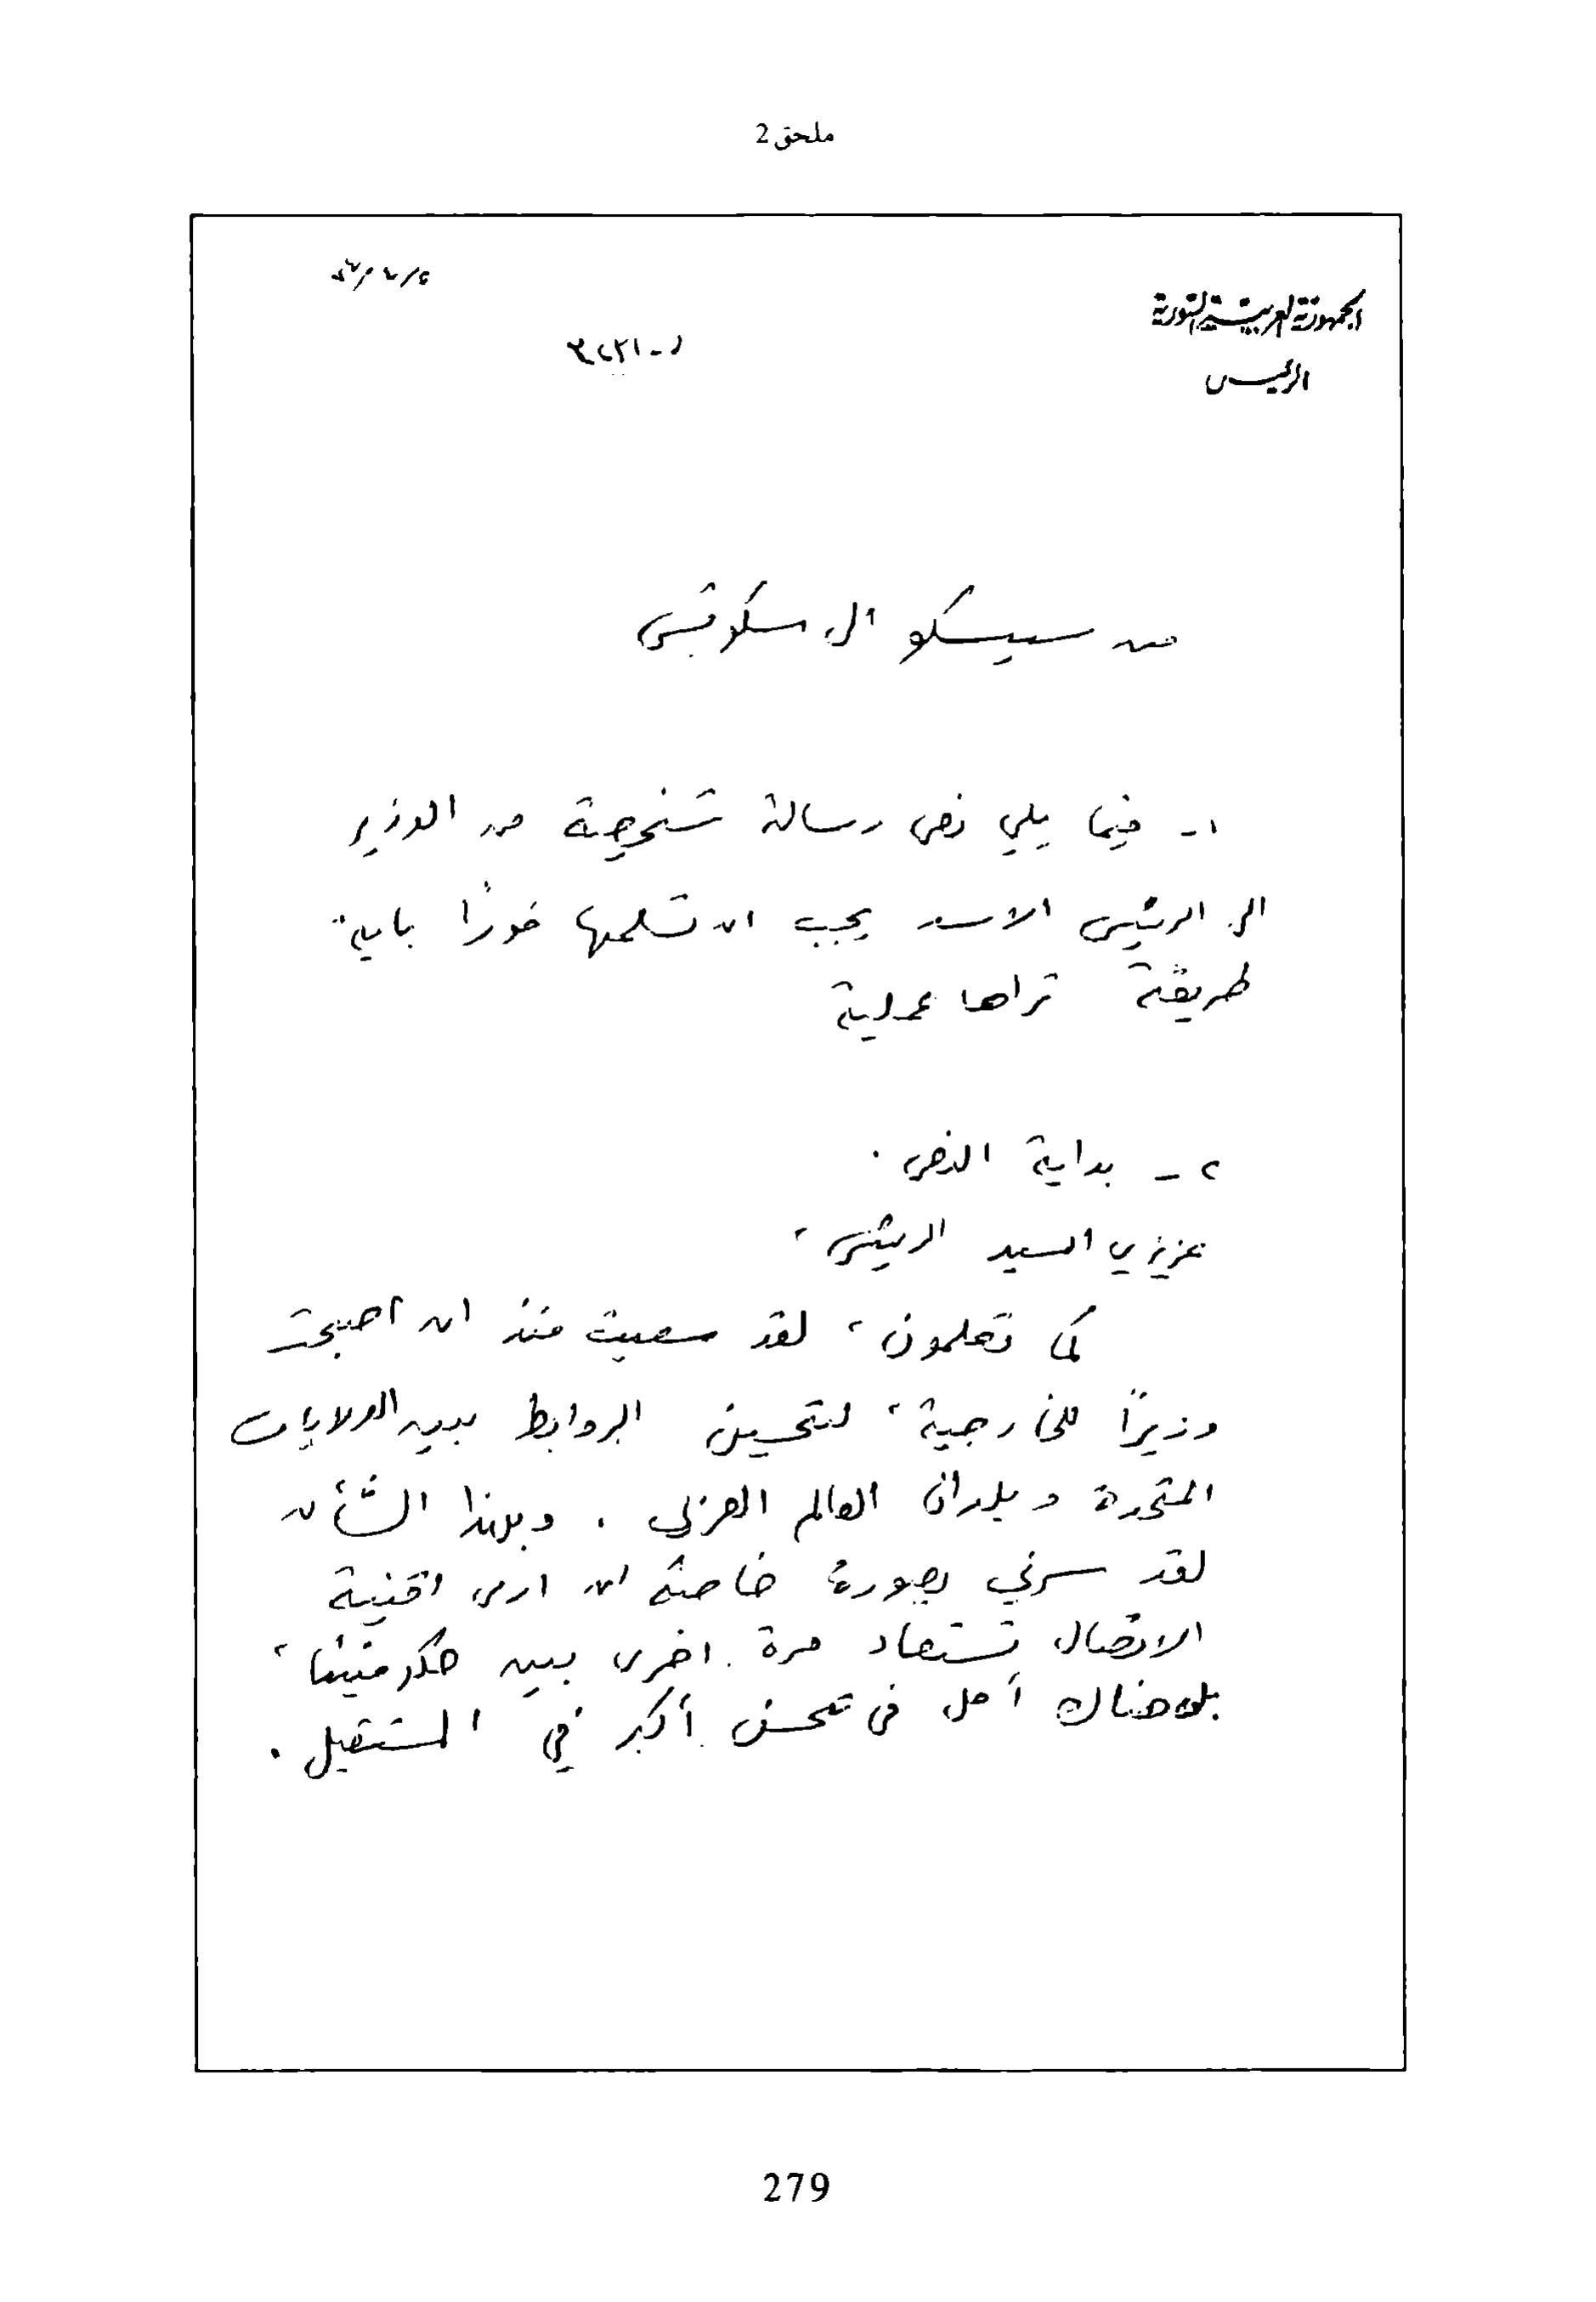 ملحق 2
الجمهورية العربية السورية
الرئيس
من سيسكو الى سكوتس
١- فيما يلي نص رسالة شخصية من الوزير
الى الرئيس الاسد يجب ان تسلمها فوراً باية
طريقة تراها عملية
٢- بداية النص .
عزيزي السيد الرئيس ،
كما تعلمون ، لقد سعيت منذ ان أصبحت
وزيراً للخارجية ، لتحسين الروابط بين الولايات
المتحدة وبلدان العالم العربي . وبهذا الشأن
لقد سرني بصورة خاصة ان ارى اقنية
الاتصال تستعاد مرة اخرى بين حكومتينا ،
هناك أمل في تحسن أكبر في المستقبل .
279